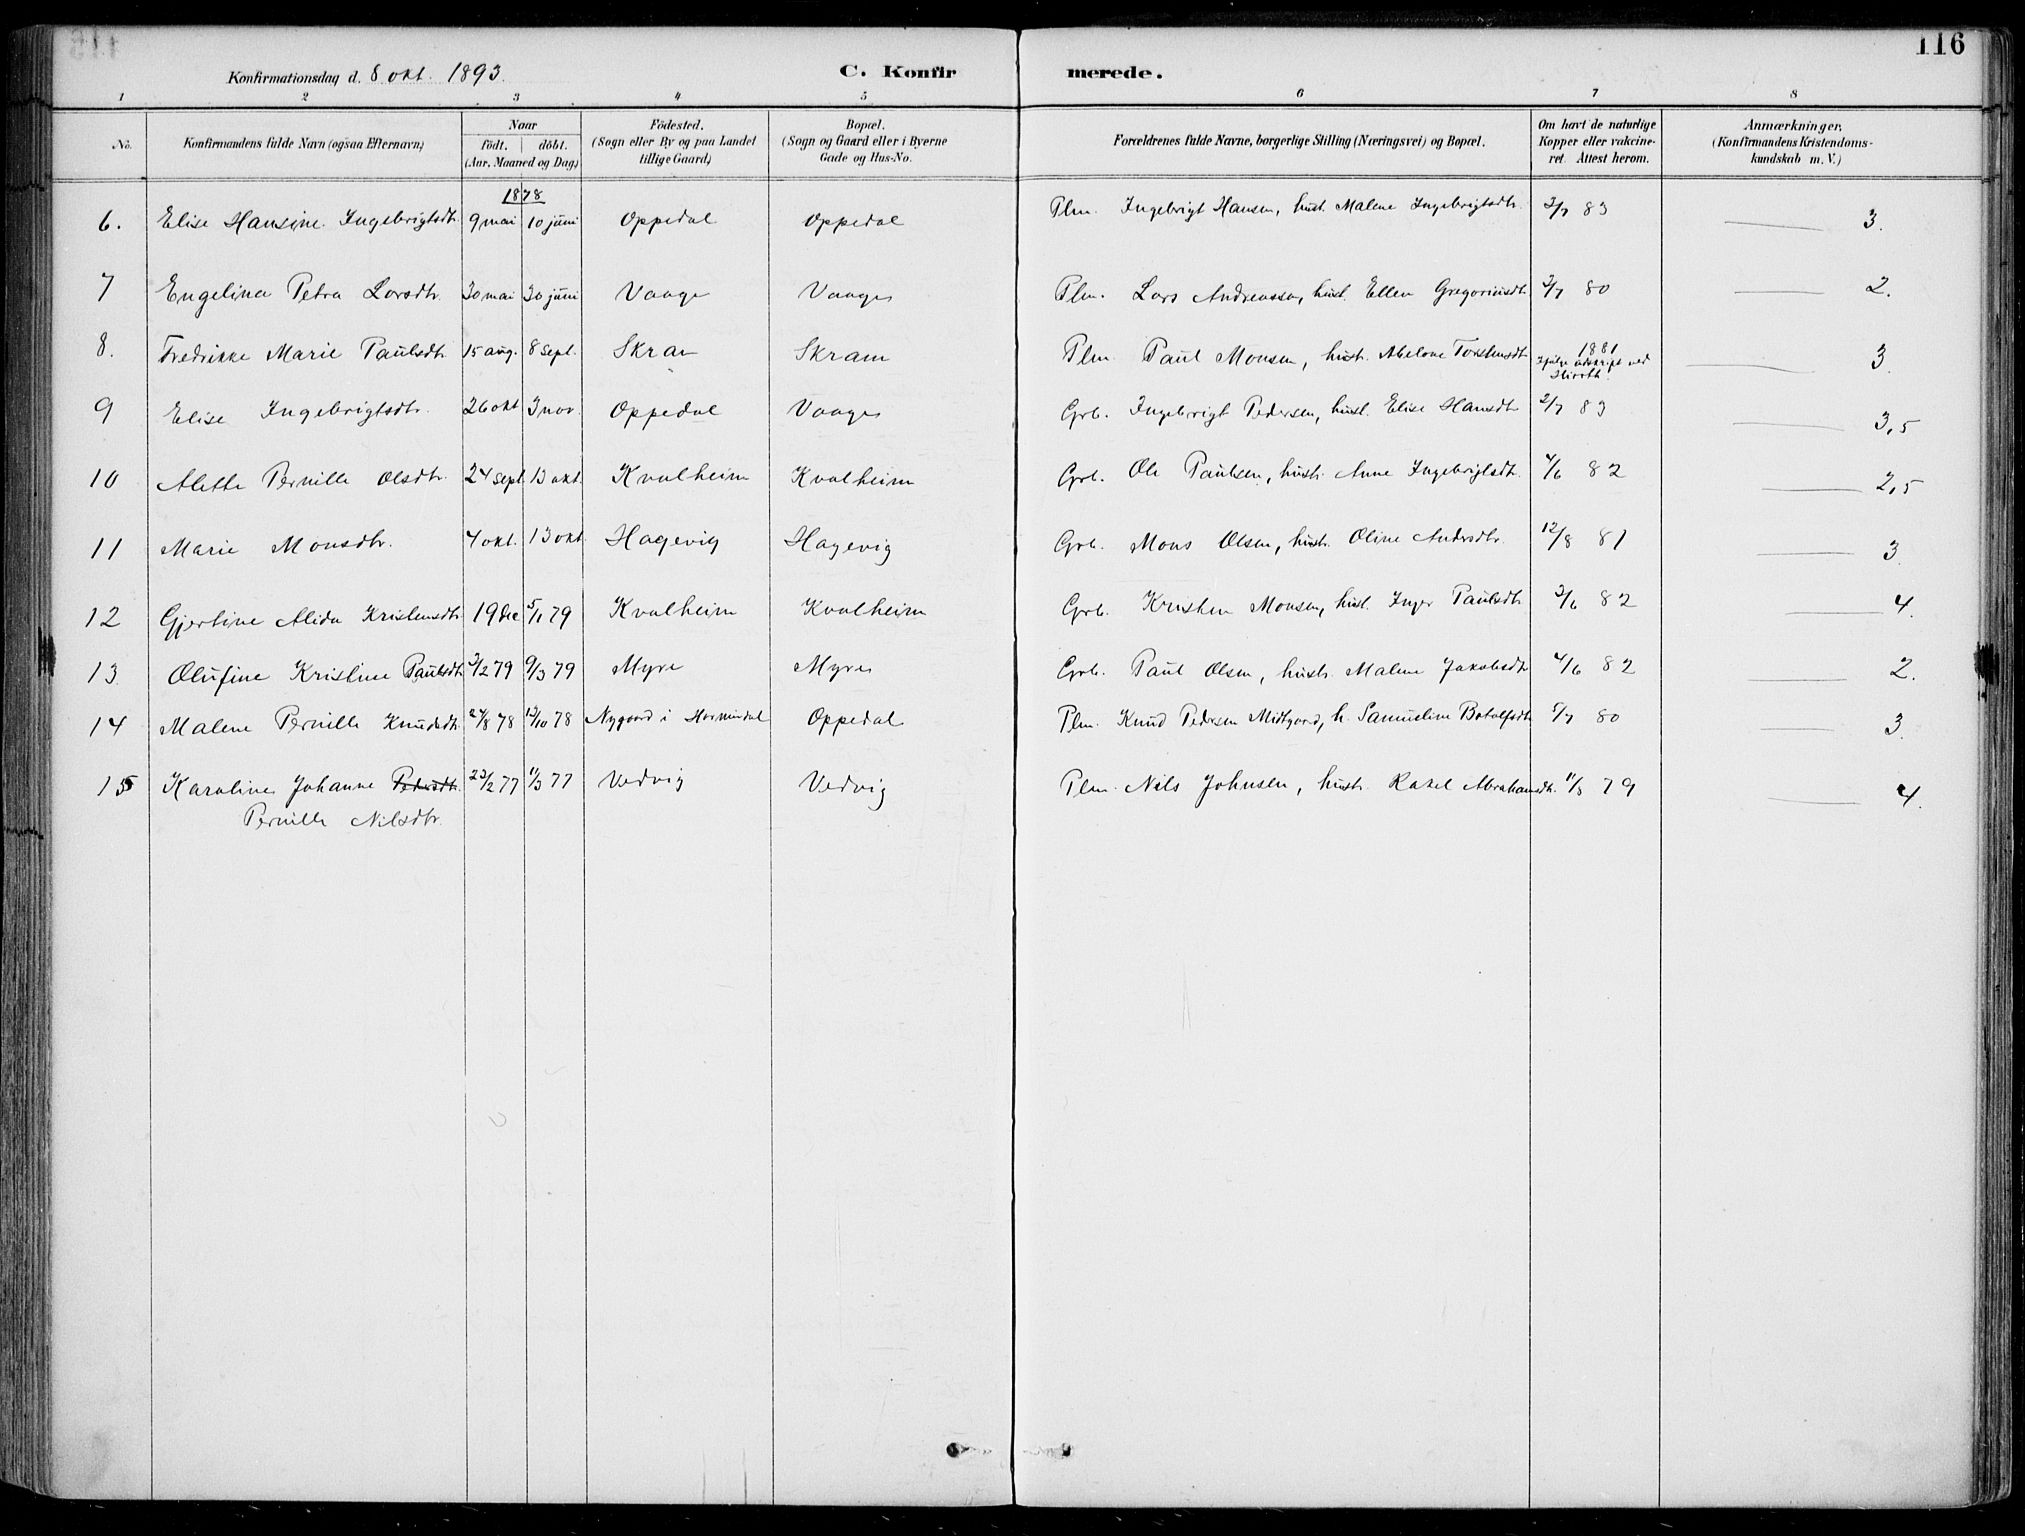 116
Konfirmationsdag d. 8 okt. 1893.
C. Konfirmerede.
1 2 3 4 5 6 7 8
No. Konfirmandens fulde Navn (ogsaa Efternavn) Naar födt. döbt. (Aar, Maaned og Dag) Födested. (Sogn eller By og paa Landet tillige Gaard) Bopæl. (Sogn og Gaard eller i Byerne Gade og Hus-No. Forældrenes fulde Navne, borgerlige Stilling (Næringsvei) og Bopæl. Om havt de naturlige Kopper eller vakcineret. Attest herom. Anmærkninger. (Konfirmandens Kristendomskundskab m. V.)
1878
6. Elise Hansine Ingebrigtsdtr. 9 mai 10 juni Oppedal Oppedal Plm. Ingebrigt Hansen, hust. Malene Ingebrigtsdtr. 2/7 83 3.
7 Engelina Petra Larsdtr. 30 mai 30 juni Vaage Vaage Plm. Lars Andreassen, hust. Ellen Gregoriusdtr. 2/7 80 2.
8. Fredrikke Marie Paulsdtr. 15 aug. 8 sept. Skram Skram Plm Paul Monsen, hust. Abelone Torstensdtr. 1881 3
9 Elise Ingebrigtsdtr. 26 okt 3 nov. Oppedal Vaage Grb. Ingebrigt Pedersen, hust. Elise Hansdtr 2/7 83 3,5
10 Alette Pernille Olsdtr. 24 sept. 13 okt. Kvalheim Kvalheim Grb. Ole Paulsen, hustr. Anne Ingebrigtsdtr. 4/6 82 2,5
11 Marie Monsdtr. 4 okt. 13 okt Hagevig Hagevig Grb. Mons Olsen, hustr. Oline Andersdtr. 12/8 81 3
12 Gjertine Alida Kristensdtr. 19 dec 5/1 79 Kvalheim Kvalheim Grb. Kristen Monsen, hust. Inger Paulsdtr. 3/6 82 4.
13 Olufine Kristine Paulsdtr. 3/2 79 9/3 79 Myre Myre Grb. Paul Olsen, hustr. Malene Jakobsdtr. 4/6 82 2.
14 Malene Pernille Knudsdtr. 24/8 78 13/10 78 Nygaard i Hornindal Oppedal Plm. Knud Pedersen Midtgaard, h. Samueline Botolfsdtr. 5/7 80 3.
15 Karoline Johanne Pedersdtr. 23/2 77 11/3 77 Vedvig Vedvig Plm. Nils Johnsen, hustr. Rakel Abrahamsdtr. 11/8 79 4.
Pernille Nilsdtr.